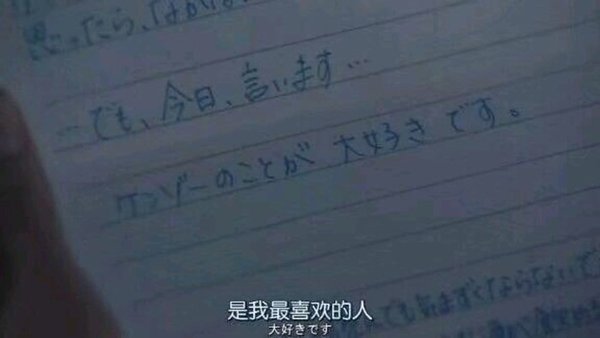 思ったら、
…でも、今日、言います…
ケンゾーのことが 大好きです。
んでも気まずくならないで
是我最喜欢的人
大好きです